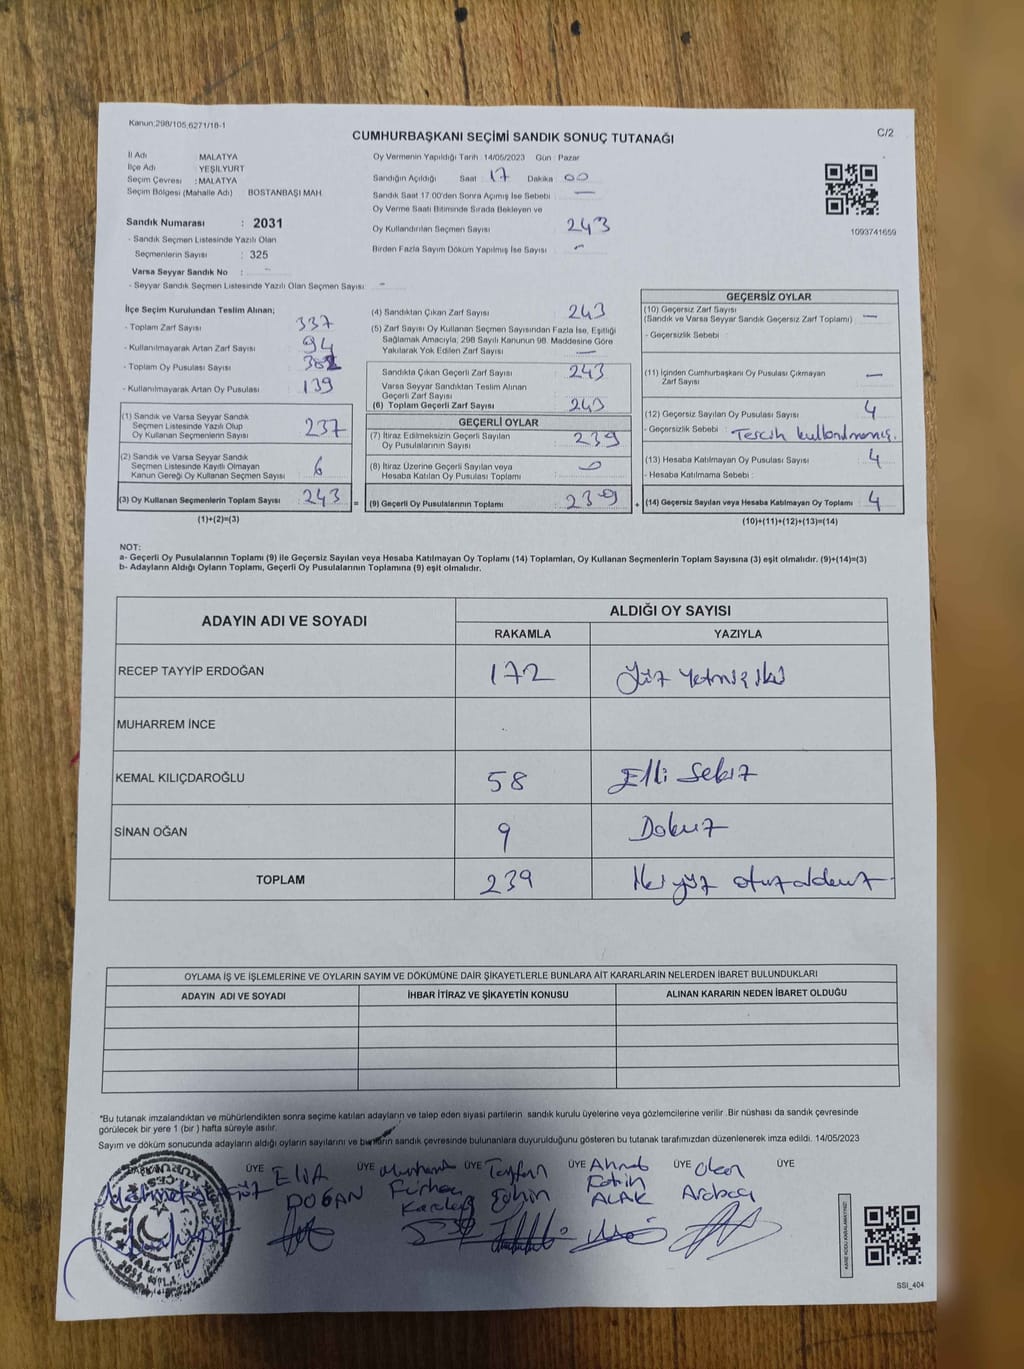 Kanun:298/105,6271/18-1
CUMHURBAŞKANI SEÇİMİ SANDIK SONUÇ TUTANAĞI
C/2
İl Adı MALATYA
İlçe Adı : YEŞİLYURT
Seçim Çevresi : MALATYA
Seçim Bölgesi (Mahalle Adı) BOSTANBAŞI MAH.
Sandık Numarası : 2031
- Sandık Seçmen Listesinde Yazılı Olan
Seçmenlerin Sayısı : 325
Varsa Seyyar Sandık No : -
- Seyyar Sandık Seçmen Listesinde Yazılı Olan Seçmen Sayısı : -
Oy Vermenin Yapıldığı Tarih : 14/05/2023 Gün : Pazar
Sandığın Açıldığı Saat : 17 Dakika : 00
Sandık Saat 17:00'den Sonra Açımış İse Sebebi : —
Oy Verme Saati Bitiminde Sırada Bekleyen ve
Oy Kullandırılan Seçmen Sayısı : 243
Birden Fazla Sayım Döküm Yapılmış İse Sayısı : -
1093741659
İlçe Seçim Kurulundan Teslim Alınan;
- Toplam Zarf Sayısı : 337
- Kullanılmayarak Artan Zarf Sayısı : 94
- Toplam Oy Pusulası Sayısı :
- Kullanılmayarak Artan Oy Pusulası : 139
(1) Sandık ve Varsa Seyyar Sandık
Seçmen Listesinde Yazılı Olup
Oy Kullanan Seçmenlerin Sayısı : 237
(2) Sandık ve Varsa Seyyar Sandık
Seçmen Listesinde Kayıtlı Olmayan
Kanun Gereği Oy Kullanan Seçmen Sayısı : 6
(3) Oy Kullanan Seçmenlerin Toplam Sayısı : 243
(1)+(2)=(3)
(4) Sandıktan Çıkan Zarf Sayısı : 243
(5) Zarf Sayısı Oy Kullanan Seçmen Sayısından Fazla İse, Eşitliği
Sağlamak Amacıyla, 298 Sayılı Kanunun 98. Maddesine Göre
Yakılarak Yok Edilen Zarf Sayısı : —
Sandıkta Çıkan Geçerli Zarf Sayısı : 243
Varsa Seyyar Sandıktan Teslim Alınan
Geçerli Zarf Sayısı
(6) Toplam Geçerli Zarf Sayısı : 243
GEÇERLİ OYLAR
(7) İtiraz Edilmeksizin Geçerli Sayılan
Oy Pusulalarının Sayısı : 239
(8) İtiraz Üzerine Geçerli Sayılan veya
Hesaba Katılan Oy Pusulası Toplamı : 0
(9) Geçerli Oy Pusulalarının Toplamı : 239
GEÇERSİZ OYLAR
(10) Geçersiz Zarf Sayısı
(Sandık ve Varsa Seyyar Sandık Geçersiz Zarf Toplamı) : —
- Geçersizlik Sebebi :
(11) İçinden Cumhurbaşkanı Oy Pusulası Çıkmayan
Zarf Sayısı : —
(12) Geçersiz Sayılan Oy Pusulası Sayısı : 4
- Geçersizlik Sebebi : Tercih kullanılmamış.
(13) Hesaba Katılmayan Oy Pusulası Sayısı : 4
- Hesaba Katılmama Sebebi :
(14) Geçersiz Sayılan veya Hesaba Katılmayan Oy Toplamı : 4
(10)+(11)+(12)+(13)=(14)
NOT:
a- Geçerli Oy Pusulalarının Toplamı (9) ile Geçersiz Sayılan veya Hesaba Katılmayan Oy Toplamı (14) Toplamları, Oy Kullanan Seçmenlerin Toplam Sayısına (3) eşit olmalıdır. (9)+(14)=(3)
b- Adayların Aldığı Oyların Toplamı, Geçerli Oy Pusulalarının Toplamına (9) eşit olmalıdır.
ADAYIN ADI VE SOYADI ALDIĞI OY SAYISI
RAKAMLA YAZIYLA
RECEP TAYYİP ERDOĞAN 172 Yüz Yetmiş iki
MUHARREM İNCE
KEMAL KILIÇDAROĞLU 58 Elli Sekiz
SİNAN OĞAN 9 Dokuz
TOPLAM 239 İki yüz otuz dokuz
OYLAMA İŞ VE İŞLEMLERİNE VE OYLARIN SAYIM VE DÖKÜMÜNE DAİR ŞİKAYETLERLE BUNLARA AİT KARARLARIN NELERDEN İBARET BULUNDUKLARI
ADAYIN ADI VE SOYADI İHBAR İTİRAZ VE ŞİKAYETİN KONUSU ALINAN KARARIN NEDEN İBARET OLDUĞU
*Bu tutanak imzalandıktan ve mühürlendikten sonra seçime katılan adayların ve talep eden siyasi partilerin sandık kurulu üyelerine veya gözlemcilerine verilir .Bir nüshası da sandık çevresinde
görülecek bir yere 1 (bir ) hafta süreyle asılır.
Sayım ve döküm sonucunda adayların aldığı oyların sayılarını ve bunların sandık çevresinde bulunanlara duyurulduğunu gösteren bu tutanak tarafımızdan düzenlenerek imza edildi. 14/05/2023
ÜYE ÜYE ÜYE ÜYE ÜYE ÜYE
ELİF DOĞAN
Tayfun Şahin
Ahmet Fatih ALAK
Okan
KARE KODU KARALAMAYINIZ!
SSI_404